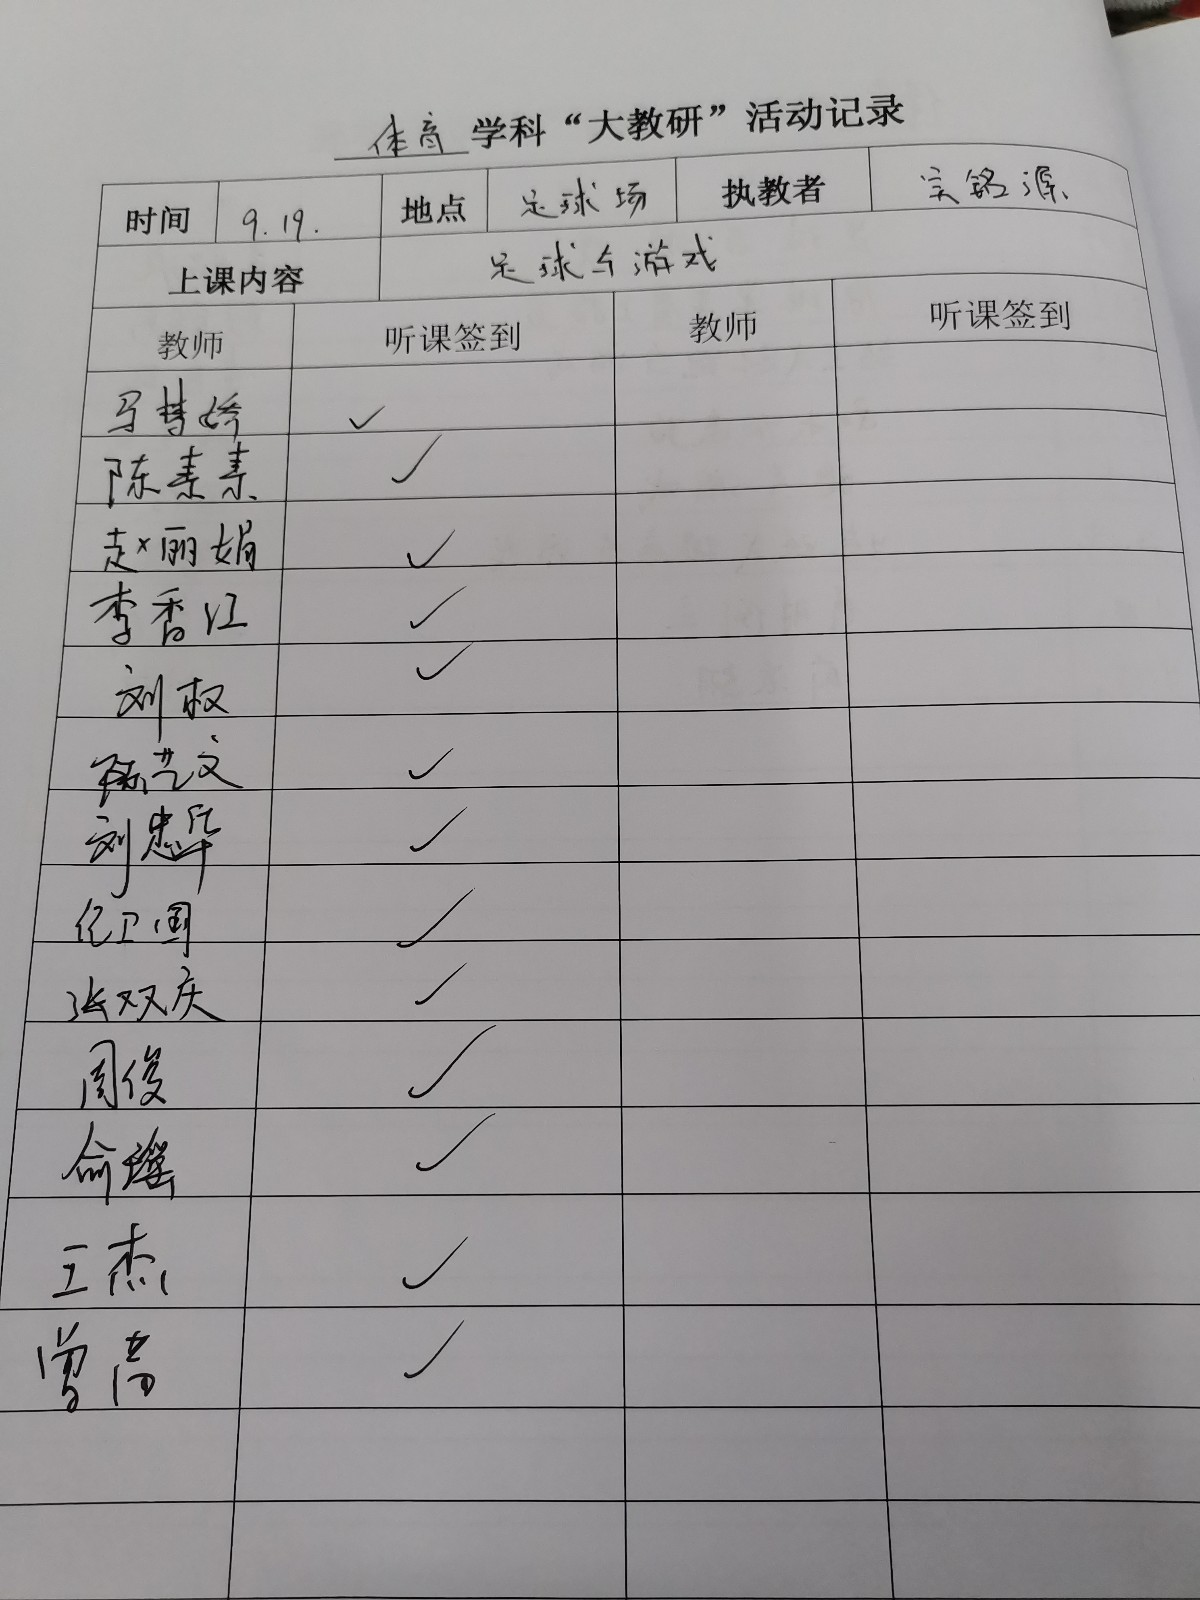 体育 学科“大教研”活动记录
时间 9.19. 地点 足球场 执教者 吴铭源
上课内容 足球与游戏
教师 听课签到 教师 听课签到
马慧娇 ✓
陈素素 ✓
赵丽娟 ✓
李香江 ✓
刘权 ✓
陈艺文 ✓
刘忠华 ✓
纪卫国 ✓
张双庆 ✓
周俊 ✓
俞瑶 ✓
王杰 ✓
曾高 ✓